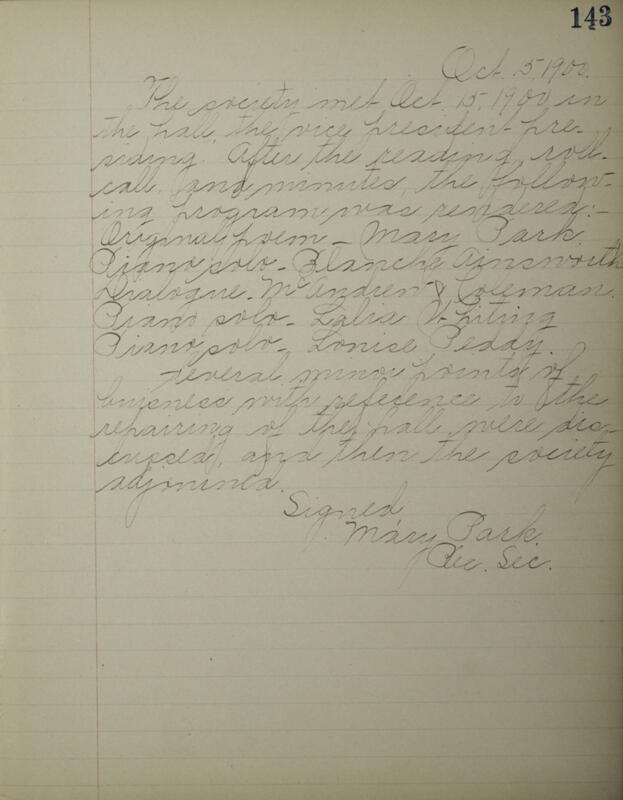 143
Oct. 15, 1900.
The society met Oct. 15, 1900, in
the hall, the vice president pre-
siding. After the reading, roll-
call, and minutes, the follow-
ing program was rendered:-
Original poem - Mary Park.
Piano solo - Blanche Ainsworth
Dialogue - McAndrew & Coleman.
Piano solo - Lalia Whiting
Piano solo - Louise Peddy.
Several minor points of
buisness with reference to the
repairing of the hall were dis-
cussed, and then the society
adjourned.
Signed
Mary Park.
Rec. Sec.